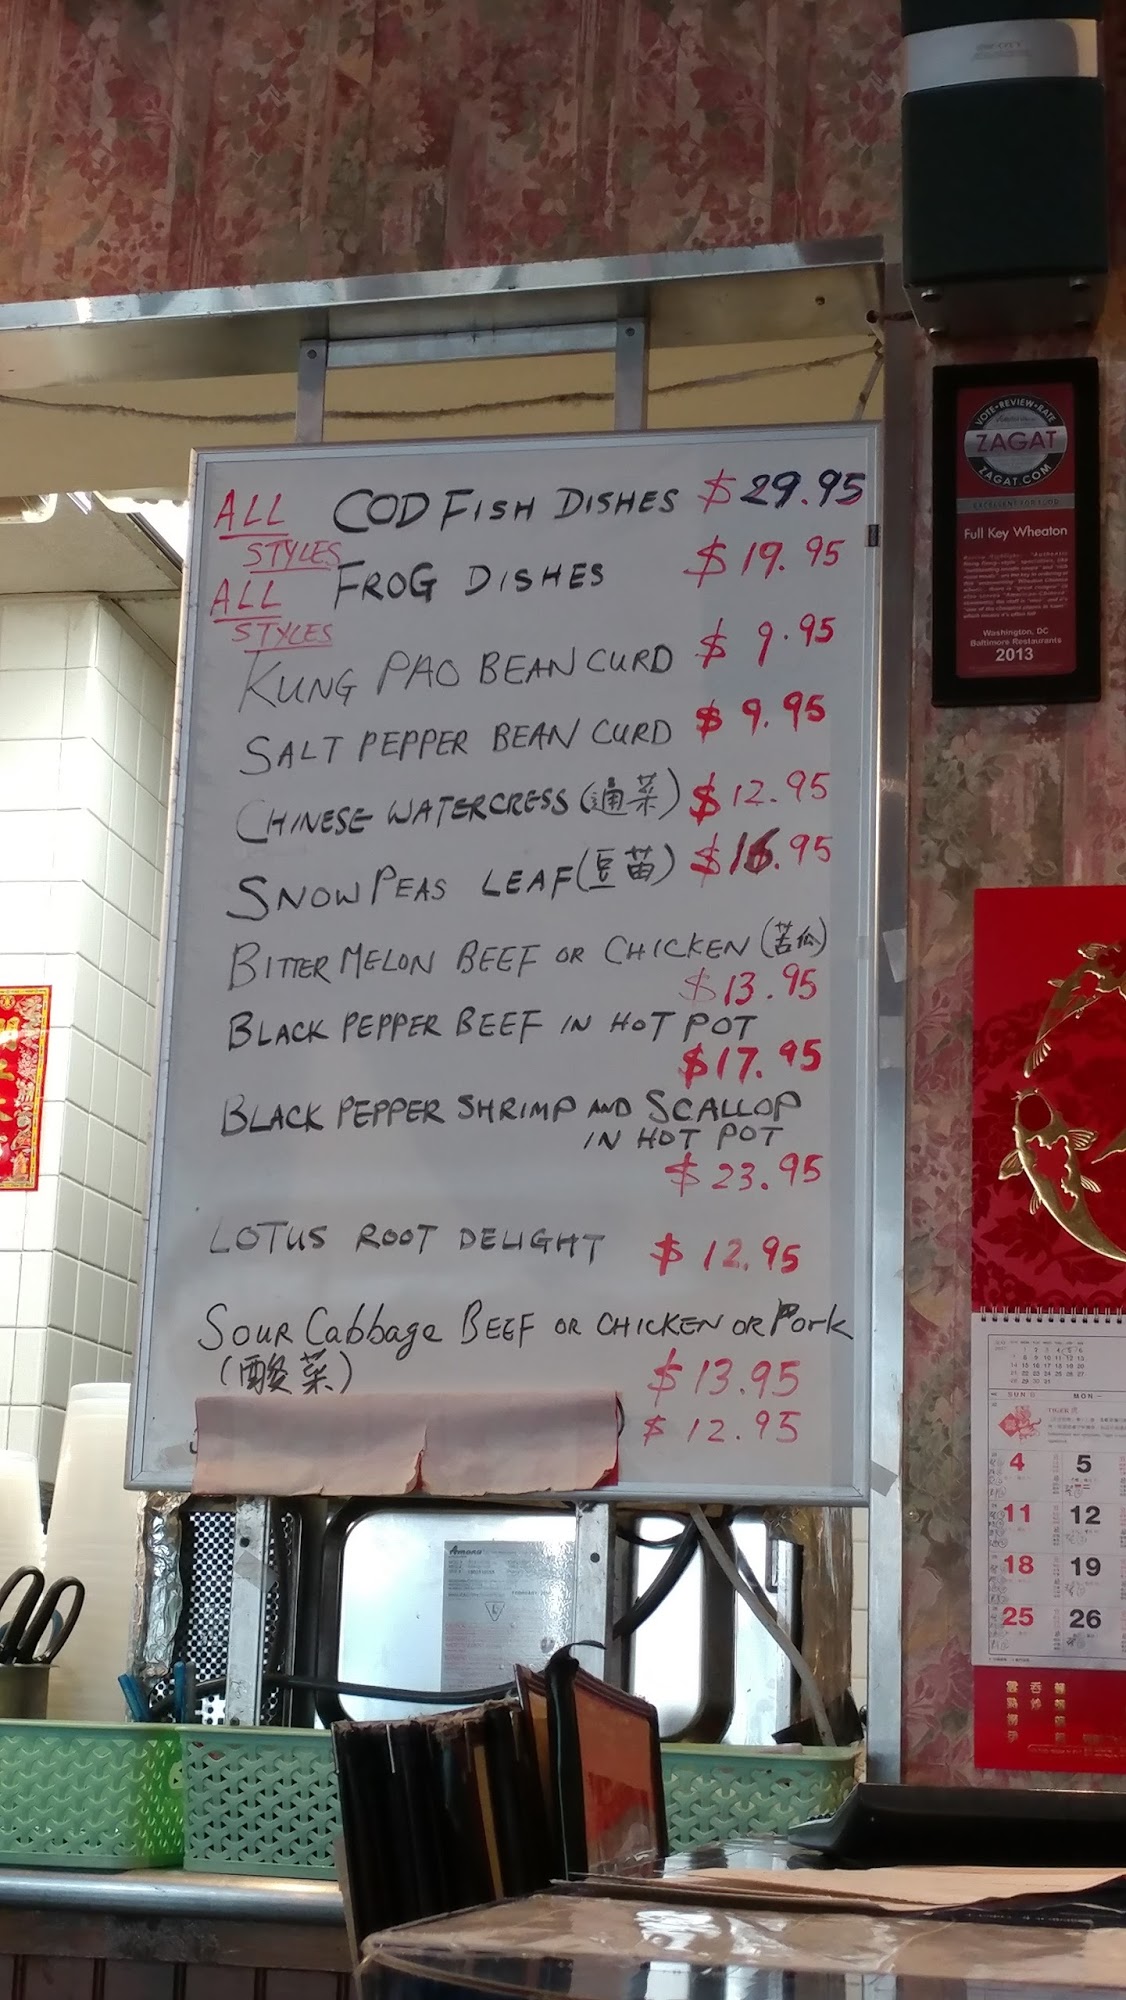 ALL COD FISH DISHES $29.95
STYLES
ALL FROG DISHES $19.95
STYLES
KUNG PAO BEAN CURD $9.95
SALT PEPPER BEAN CURD $9.95
CHINESE WATERCRESS (通菜) $12.95
SNOW PEAS LEAF (豆苗) $16.95
BITTER MELON BEEF OR CHICKEN (苦瓜)
$13.95
BLACK PEPPER BEEF IN HOT POT
$17.95
BLACK PEPPER SHRIMP AND SCALLOP
IN HOT POT
$23.95
LOTUS ROOT DELIGHT $12.95
SOUR Cabbage BEEF OR CHICKEN OR Pork
(酸菜) $13.95
$12.95
VOTE•REVIEW•RATE
ZAGAT
ZAGAT.COM
EXCELLENT FOOD
Full Key Wheaton
Washington, DC
Baltimore Restaurants
2013
SUN MON
4 5
11 12
18 19
25 26
Amana